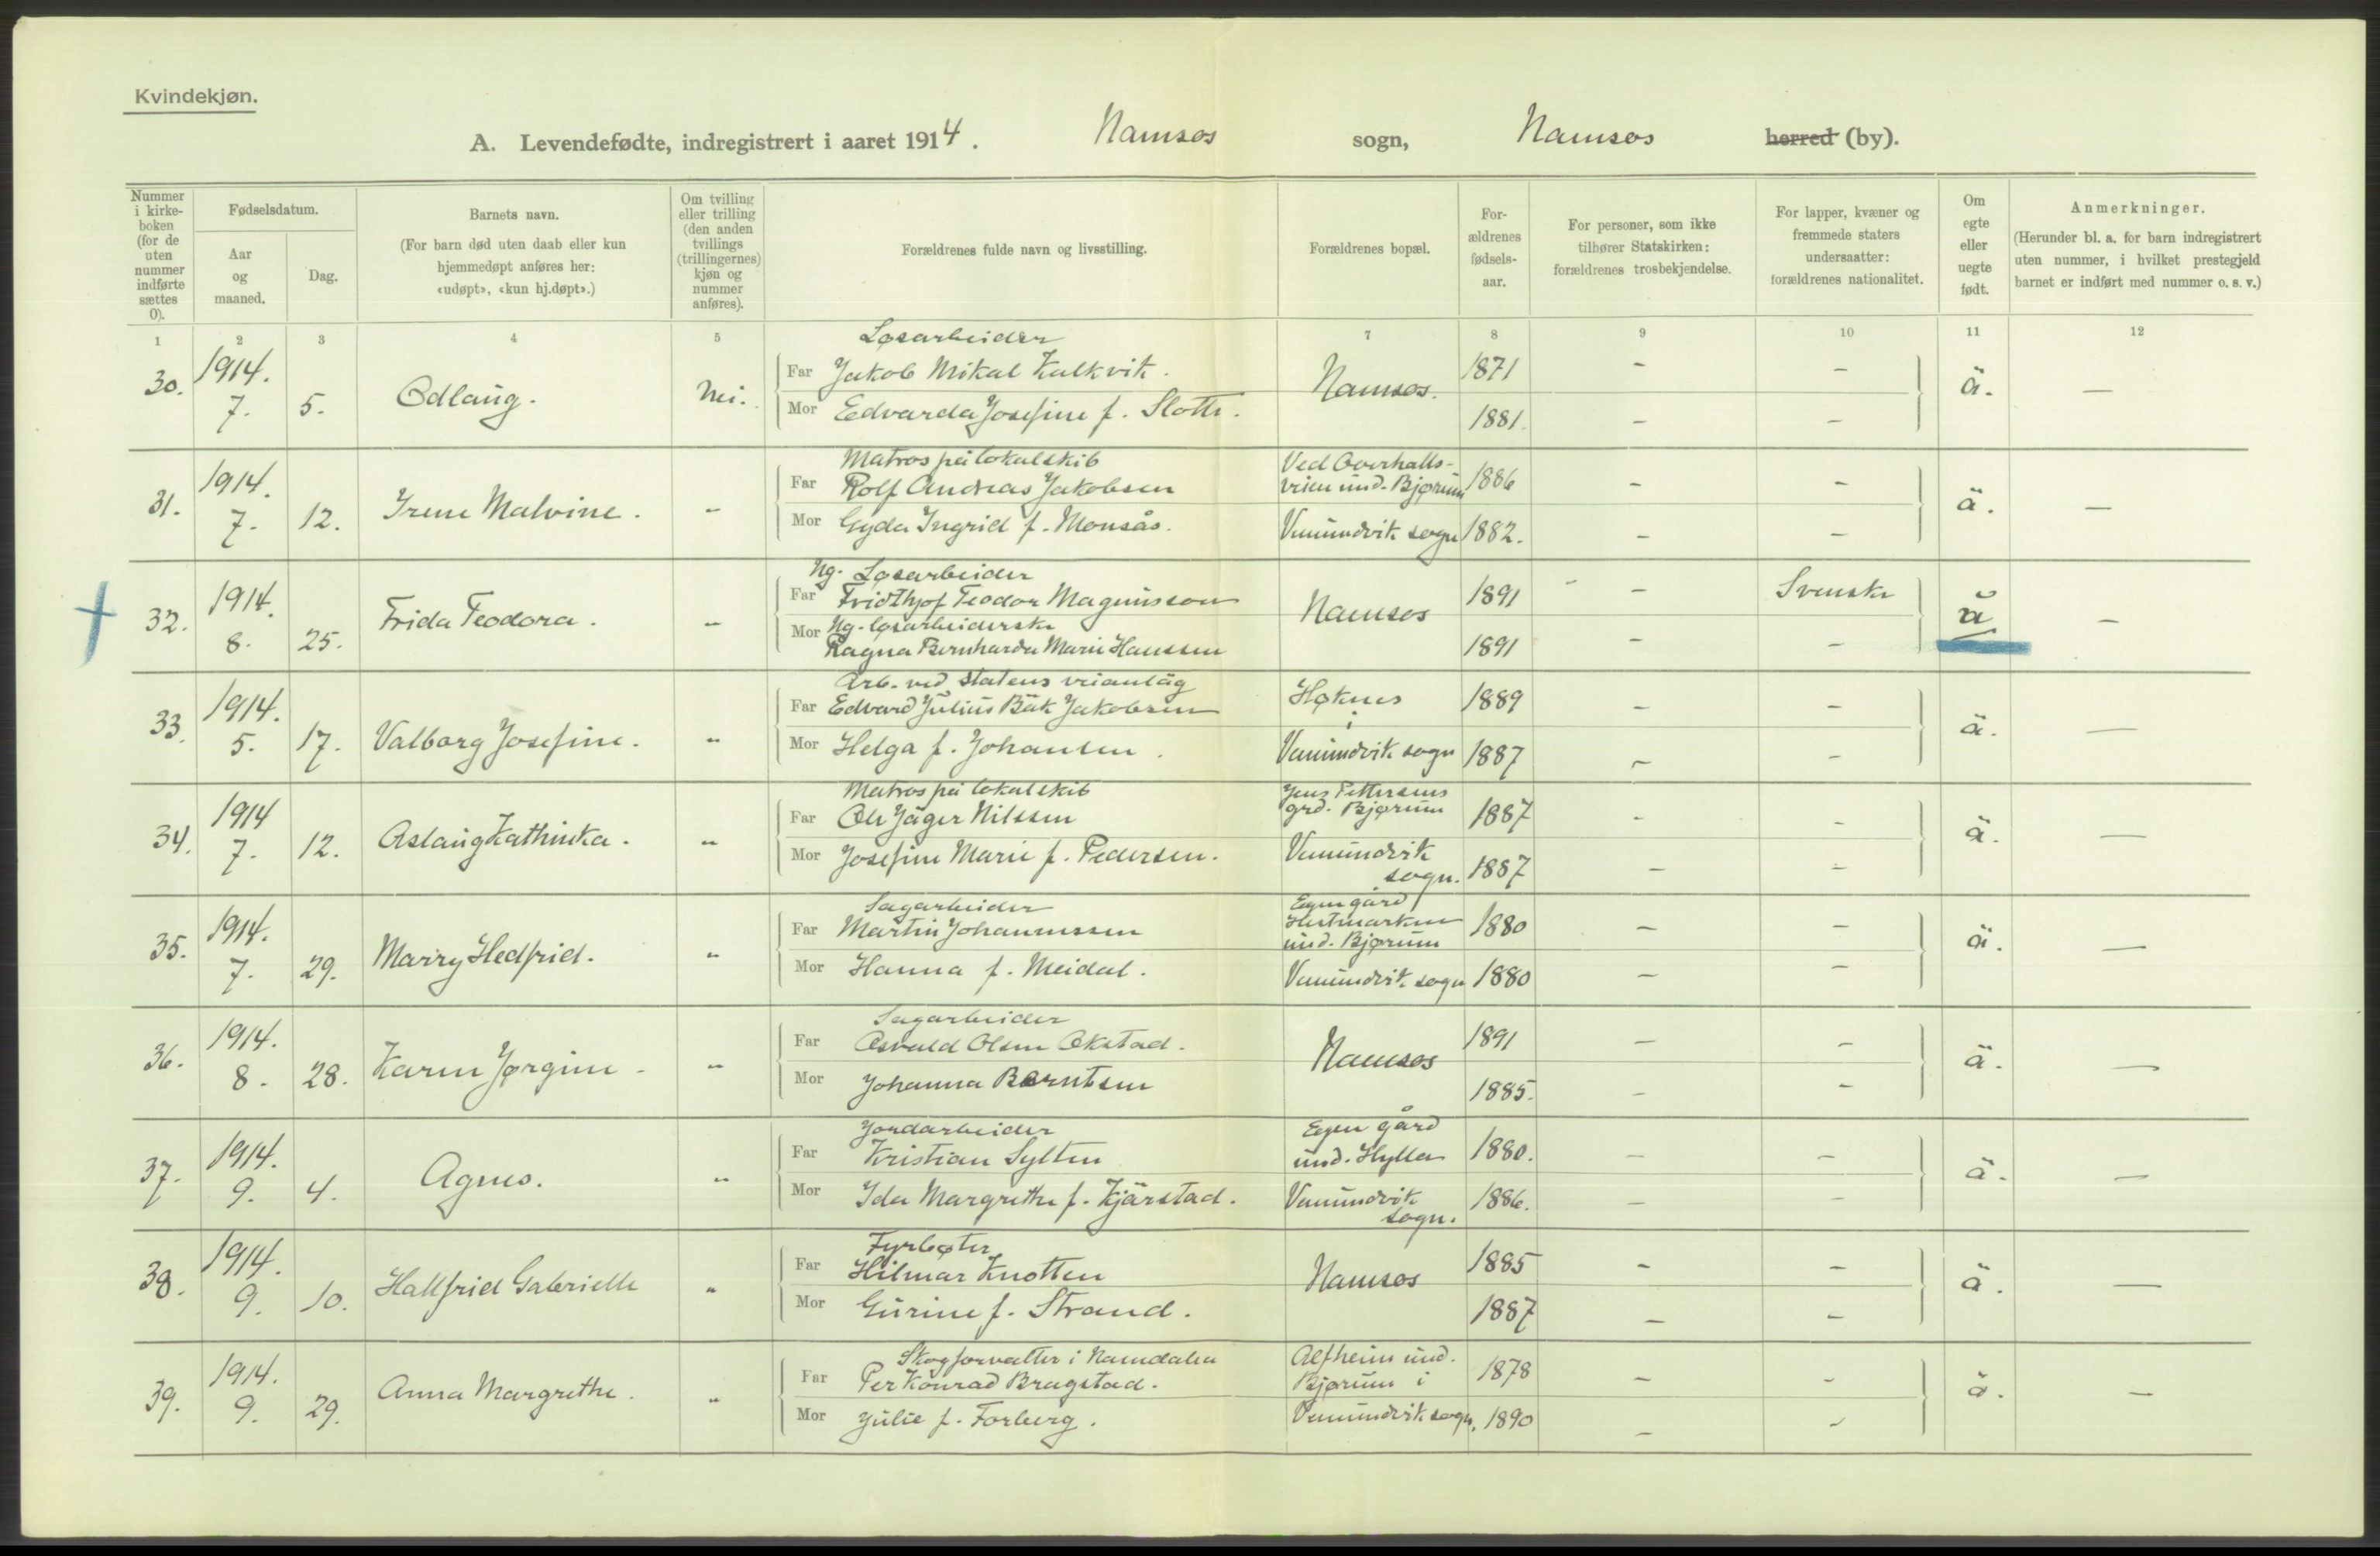 Kvindekjøn.
A. Levendefødte, indregistrert i aaret 1914. Namsos sogn, Namsos herred (by).
Nummer i kirke-boken (for de uten nummer indførte sættes 0).
Fødselsdatum.
Aar og maaned.
Dag.
Barnets navn.
(For barn død uten daab eller kun hjemmedøpt anføres her: «udøpt», «kun hj.døpt».)
Om tvilling eller trilling (den anden tvillings (trillingernes) kjøn og nummer anføres).
Forældrenes fulde navn og livsstilling.
Forældrenes bopæl.
For-ældrenes fødsels-aar.
For personer, som ikke tilhører Statskirken: forældrenes trosbekjendelse.
For lapper, kvæner og fremmede staters undersaatter: forældrenes nationalitet.
Om egte eller uegte født.
Anmerkninger.
(Herunder bl. a. for barn indregistrert uten nummer, i hvilket prestegjeld barnet er indført med nummer o. s. v.)
1 2 3 4 5 7 8 9 10 11 12
Løsarbeider
30. 1914. 7. 5. Odlaug. Nei. Far Jakob Mikal Kalkvik. Namsos. 1871 - - ä. —
Mor Edvarda Josefine f. Slotte. 1881. - -
Matros på lokalskib
31. 1914. 7. 12. Irene Malvine. " Far Rolf Andreas Jakobsen Ved Overhalls-veien und. Bjørum 1886 - - ä. —
Mor Gyda Ingrid f. Monsås. Vemundvik sogn 1882. - -
Ug. Løsarbeider
32. 1914. 8. 25. Frida Teodora. " Far Fridthjof Teodor Magnusson Namsos 1891 - Svensk ŭ —
Mor Ug. løsarbeiderske
Ragna Bernharda Marie Hanssen 1891 - -
Arb. ved statens veianlæg
33. 1914. 5. 17. Valborg Josefine. " Far Edvard Julius Båk Jakobsen Høknes i 1889 - - ä. —
Mor Helga f. Johansen. Vemundvik sogn 1887 - -
Matros på lokalskib
34. 1914 7. 12. Aslaug Kathinka. " Far Ole Jäger Nilssen Jens Pettersens grd. Bjørum 1887 - - ä. —
Mor Josefine Marie f. Pedersen. Vemundvik sogn. 1887 - -
Sagarbeider
35. 1914. 7. 29. Marry Hedfrid. " Far Martin Johannessen Egen gård und. Bjørum 1880 - - ä. —
Mor Hanna f. Meidal. Vemundvik sogn 1880 - -
Sagarbeider
36. 1914. 8. 28. Karen Jørgine - " Far Osvald Olsen Okstad. Namsos 1891 - - ä. —
Mor Johanna Berntsen 1885. - -
Jordarbeider
37. 1914. 9. 4. Agnes. " Far Kristian Sylten Egen gård und. Hylla 1880. - - ä. —
Mor Ida Margrethe f. Kjärstad. Vemundvik sogn. 1886. - -
Fyrbøter
38. 1914. 9. 10. Hallfrid Gabrielle " Far Hilmar Knotten Namsos 1885 - - ä. —
Mor Gurine f. Strand. 1887 - -
Skogforvalter i Namdalen
39. 1914. 9. 29. Anna Margrethe. " Far Per Konrad Bragstad. Alfheim und. Bjørum i 1878 - - ä. —
Mor Julie f. Forberg. Vemundvik sogn. 1890 - -